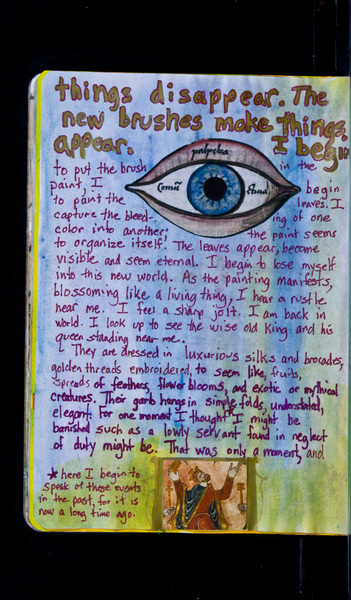 things disappear. The
new brushes make things
appear. I begin
palpebra
to put the brush in the
paint, I begin
to paint the leaves. I
capture the bleed- ing of one
color into another; the paint seems
to organize itself. The leaves appear, become
visible and seem eternal. I begin to lose myself
into this new world. As the painting manifests,
blossoming like a living thing, I hear a rustle
near me. I feel a sharp jolt. I am back in
world. I look up to see the wise old King and his
queen standing near me.
They are dressed in luxurious silks and brocades,
golden threads embroidered, to seem like, fruits,
spreads of feathers, flower blooms, and exotic or mythical
creatures. Their garb hangs in simple folds, understated,
elegant. For one moment I thought I might be
banished such as a lowly servant found in neglect
of duty might be. That was only a moment, and
* here I begin to
speak of those events
in the past, for it is
now a long time ago.